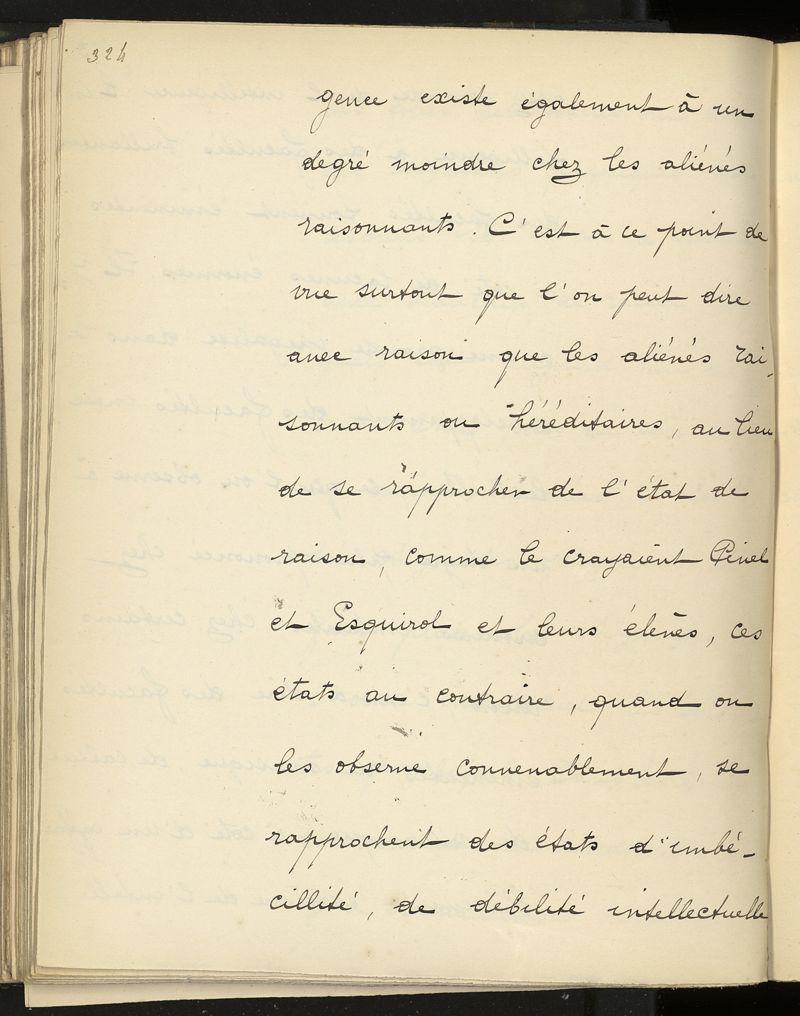 324
gence existe également à un
degré moindre chez les aliénés
raisonnants. C'est à ce point de
vue surtout que l'on peut dire
avec raison que les aliénés rai-
sonnants ou héréditaires, au lieu
de se rapprocher de l'état de
raison, comme le crayaient Pinel
et Esquirol et leurs élèves, ces
états au contraire, quand on
les observe convenablement, se
rapprochent des états d'imbé-
cillité, de débilité intellectuelle